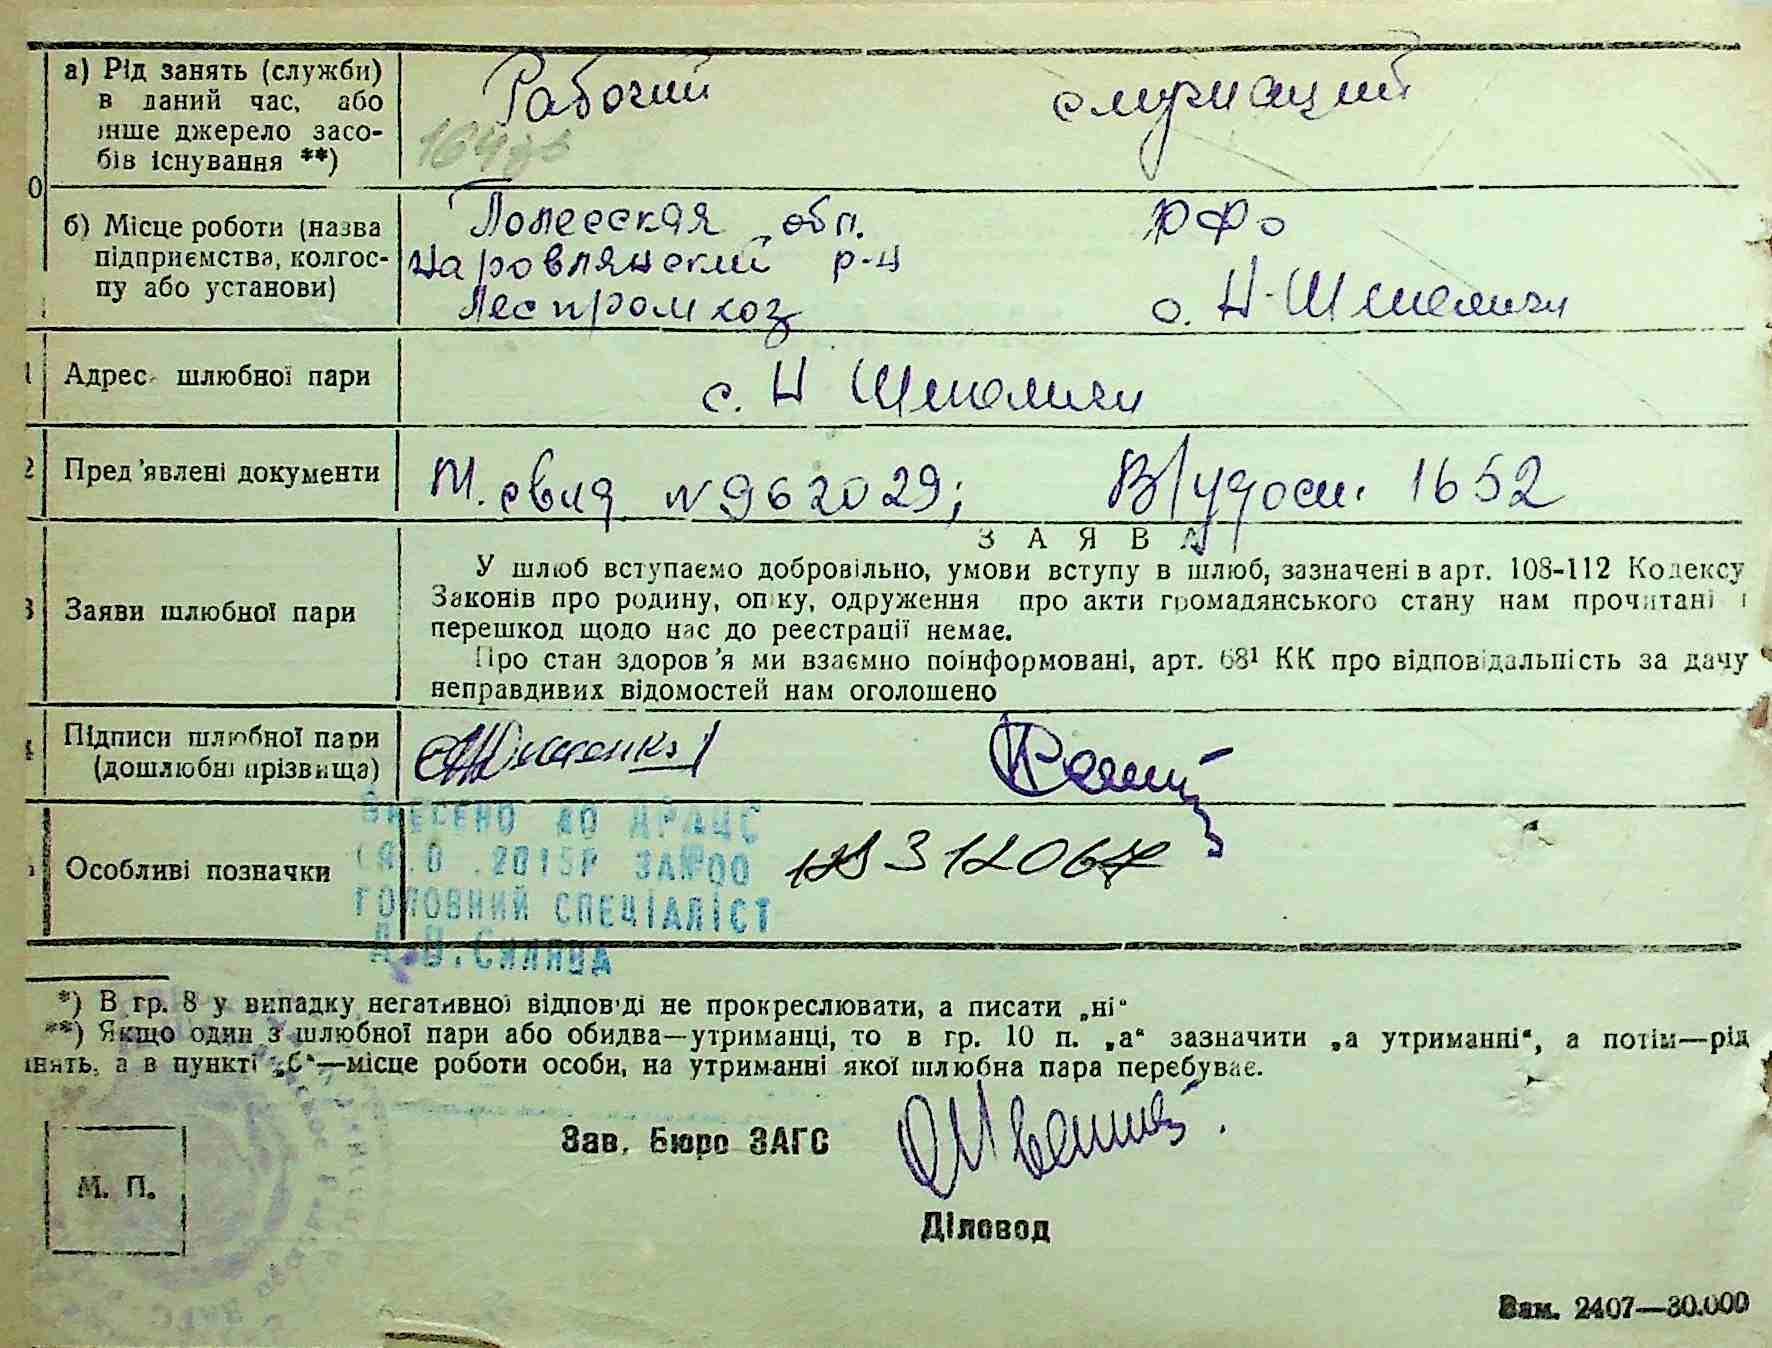 а) Рід занять (служби)
в даний час, або
інше джерело засо-
бів існування **)
Рабочий служащий
10
б) Місце роботи (назва
підприємства, колгос-
пу або установи)
Полесская обл. РФО
Наровлянский р-н
Леспромхоз с. Н-Шепеличи
Адрес шлюбної пари
с. Н Шепеличи
2 Пред'явлені документи
м. свид N 962029; В/удост. 1652
3 Заяви шлюбної пари
ЗАЯВА
У шлюб вступаємо добровільно, умови вступу в шлюб, зазначені в арт. 108-112 Кодексу
Законів про родину, опіку, одруження про акти громадянського стану нам прочитані і
перешкод щодо нас до реєстрації немає.
Про стан здоров'я ми взаємно поінформовані, арт. 68¹ КК про відповідальність за дачу
неправдивих відомостей нам оголошено
Підписи шлюбної пари
(дошлюбні прізвища)
Особливі позначки
ВНЕСЕНО ДО ДРАЦС
.2015Р ЗА №00
ГОЛОВНИЙ СПЕЦІАЛІСТ
312067
*) В гр. 8 у випадку негативної відповіді не прокреслювати, а писати „ні“
**) Якщо один з шлюбної пари або обидва—утриманці, то в гр. 10 п. „а“ зазначити „а утриманні“, а потім—рід
нять, а в пункті „б“—місце роботи особи, на утриманні якої шлюбна пара перебуває.
Зав. Бюро ЗАГС
М. П.
Діловод
Зам. 2407—30.000